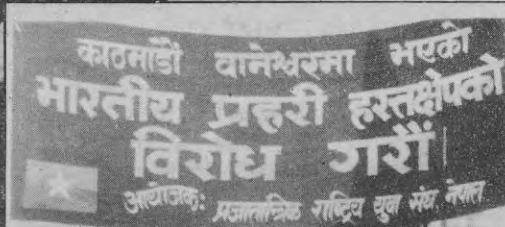 काठमाडौं वानेश्वरमा भएको
भारतीय प्रहरी हस्तक्षेपको
विरोध गरौं
आयोजक: प्रजातान्त्रिक राष्ट्रिय युवा संघ नेपाल